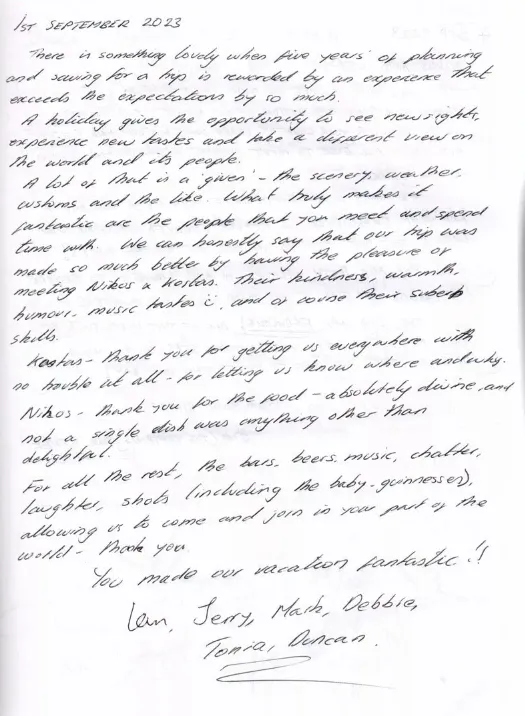 1ST SEPTEMBER 2023
There is something lovely when five years of planning
and saving for a trip is rewarded by an experience that
exceeds the expectations by so much.
A holiday gives the opportunity to see new sights,
experience new tastes and take a different view on
the world and its people.
A lot of that is a 'given' - the scenery, weather,
customs and the like. What truly makes it
fantastic are the people that you meet and spend
time with. We can honestly say that our trip was
made so much better by having the pleasure of
meeting Nikos & Kostas. Their kindness, warmth,
humour, music tastes, and of course their suberb
skills.
Kostas - thank you for getting us everywhere with
no trouble at all - for letting us know where and why.
Nikos - thank you for the food - absolutely divine, and
not a single dish was anything other than
delightful.
For all the rest, the bars, beers, music, chatter,
laughter, shots (including the baby-guinnesses),
allowing us to come and join in your part of the
world - thank you.
You made our vacation fantastic!!
Ian, Jerry, Mark, Debbie,
Tonia, Duncan.